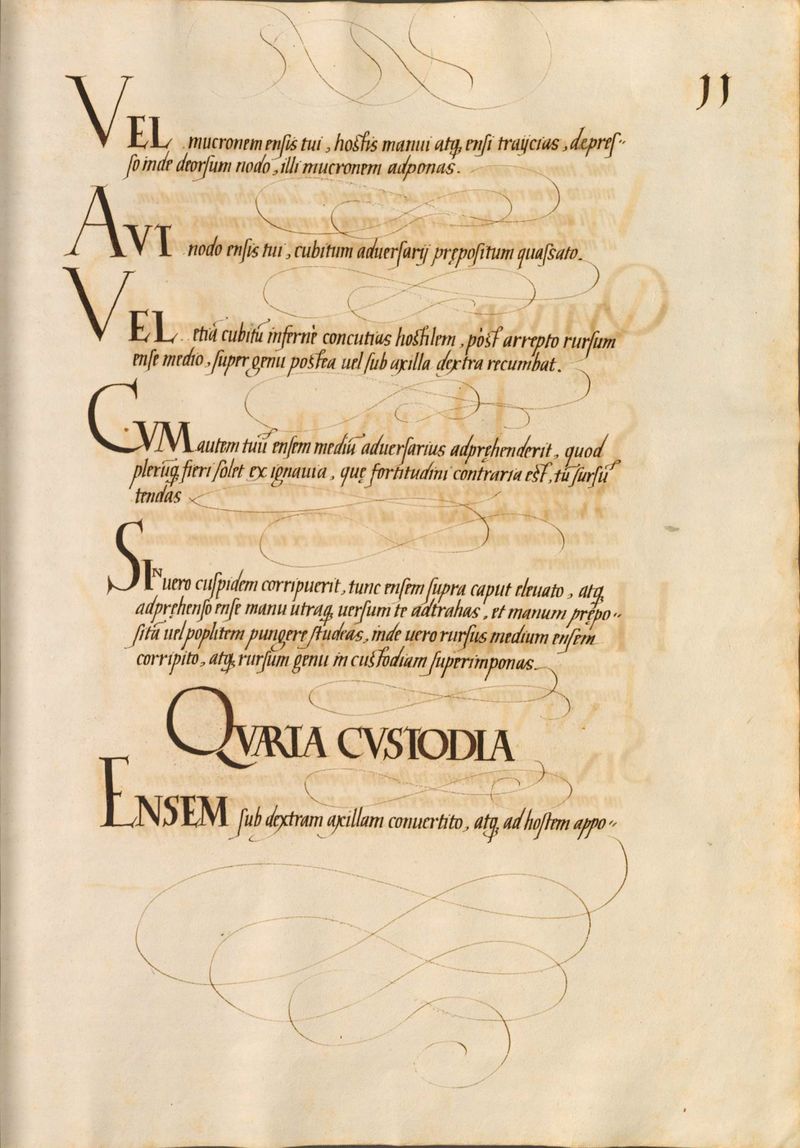 11
VEL mucronem ensis tui, hostis manui atq, ensi traijcias, depres-
so inde deorsum nodo, illi mucronem adponas.
AVT nodo ensis tui, cubitum aduersarij prępositum quassato.
VEL etiã cubitũ infernè concutias hostilem, pòst arrepto rursum
ense medio, super genu postea uel sub axilla dextra recumbat.
CVM autem tuũ ensem mediũ aduersarius adpręhenderit, quod
plerũq, fieri solet ex ignauia, quę fortitudini contraria est, tũ sursũ
tendas
SIN uero cuspidem corripuerit, tunc ensem supra caput eleuato, atq,
adpręhenso ense manu utraq, uersum te adtrahas, et manum prępo-
sitã uel poplitem pungere studeas, inde uero rursus medium ensem
corripito, atq, rursum genu in custodiam superimponas.
QVARTA CVSTODIA
ENSEM sub dextram axillam conuertito, atq, ad hostem appo-